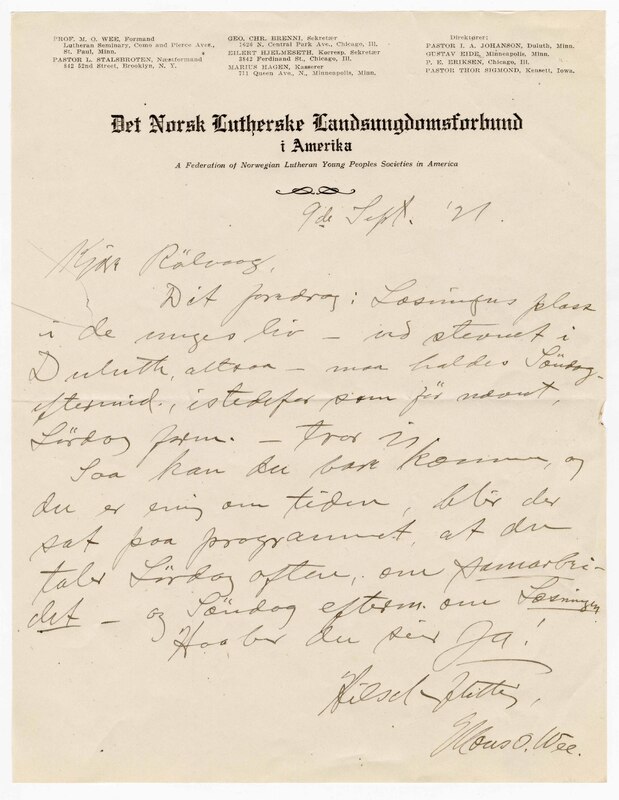 PROF. M. O. WEE, Formand
Lutheran Seminary, Como and Pierce Aves.,
St. Paul, Minn.
PASTOR L. STALSBROTEN, Næstformand
842 52nd Street, Brooklyn, N. Y.
GEO. CHR. BRENNI, Sekretær
1624 N. Central Park Ave., Chicago, Ill.
EILERT HJELMESETH, Korresp. Sekretær
3842 Ferdinand St., Chicago, Ill.
MARIUS HAGEN, Kasserer
711 Queen Ave., N., Minneapolis, Minn.
Direktører:
PASTOR I. A. JOHANSON, Duluth, Minn.
GUSTAV EIDE, Minneapolis, Minn.
P. E. ERIKSEN, Chicago, Ill.
PASTOR THOR SIGMOND, Kensett, Iowa.
Det Norsk Lutherske Landsungdomsforbund
i Amerika
A Federation of Norwegian Lutheran Young Peoples Societies in America
9de Sept. '21.
Kjære Rölvaag,
Dit foredrag: Læsningens plass
i de unges liv – ved stevnet i
Duluth, altsaa – maa holdes Söndag-
eftermid., istedefor som för nævnt,
Lördag form. – tror vi.
Saa kan du bare komme, og
du er enig om tiden, blir der
sat paa programmet, at du
taler Lördag aften, om samarbei-
det – og Söndag efterm. om Læsningen
Haaber du sier Ja!
Hilsen
Mons O. Wee.